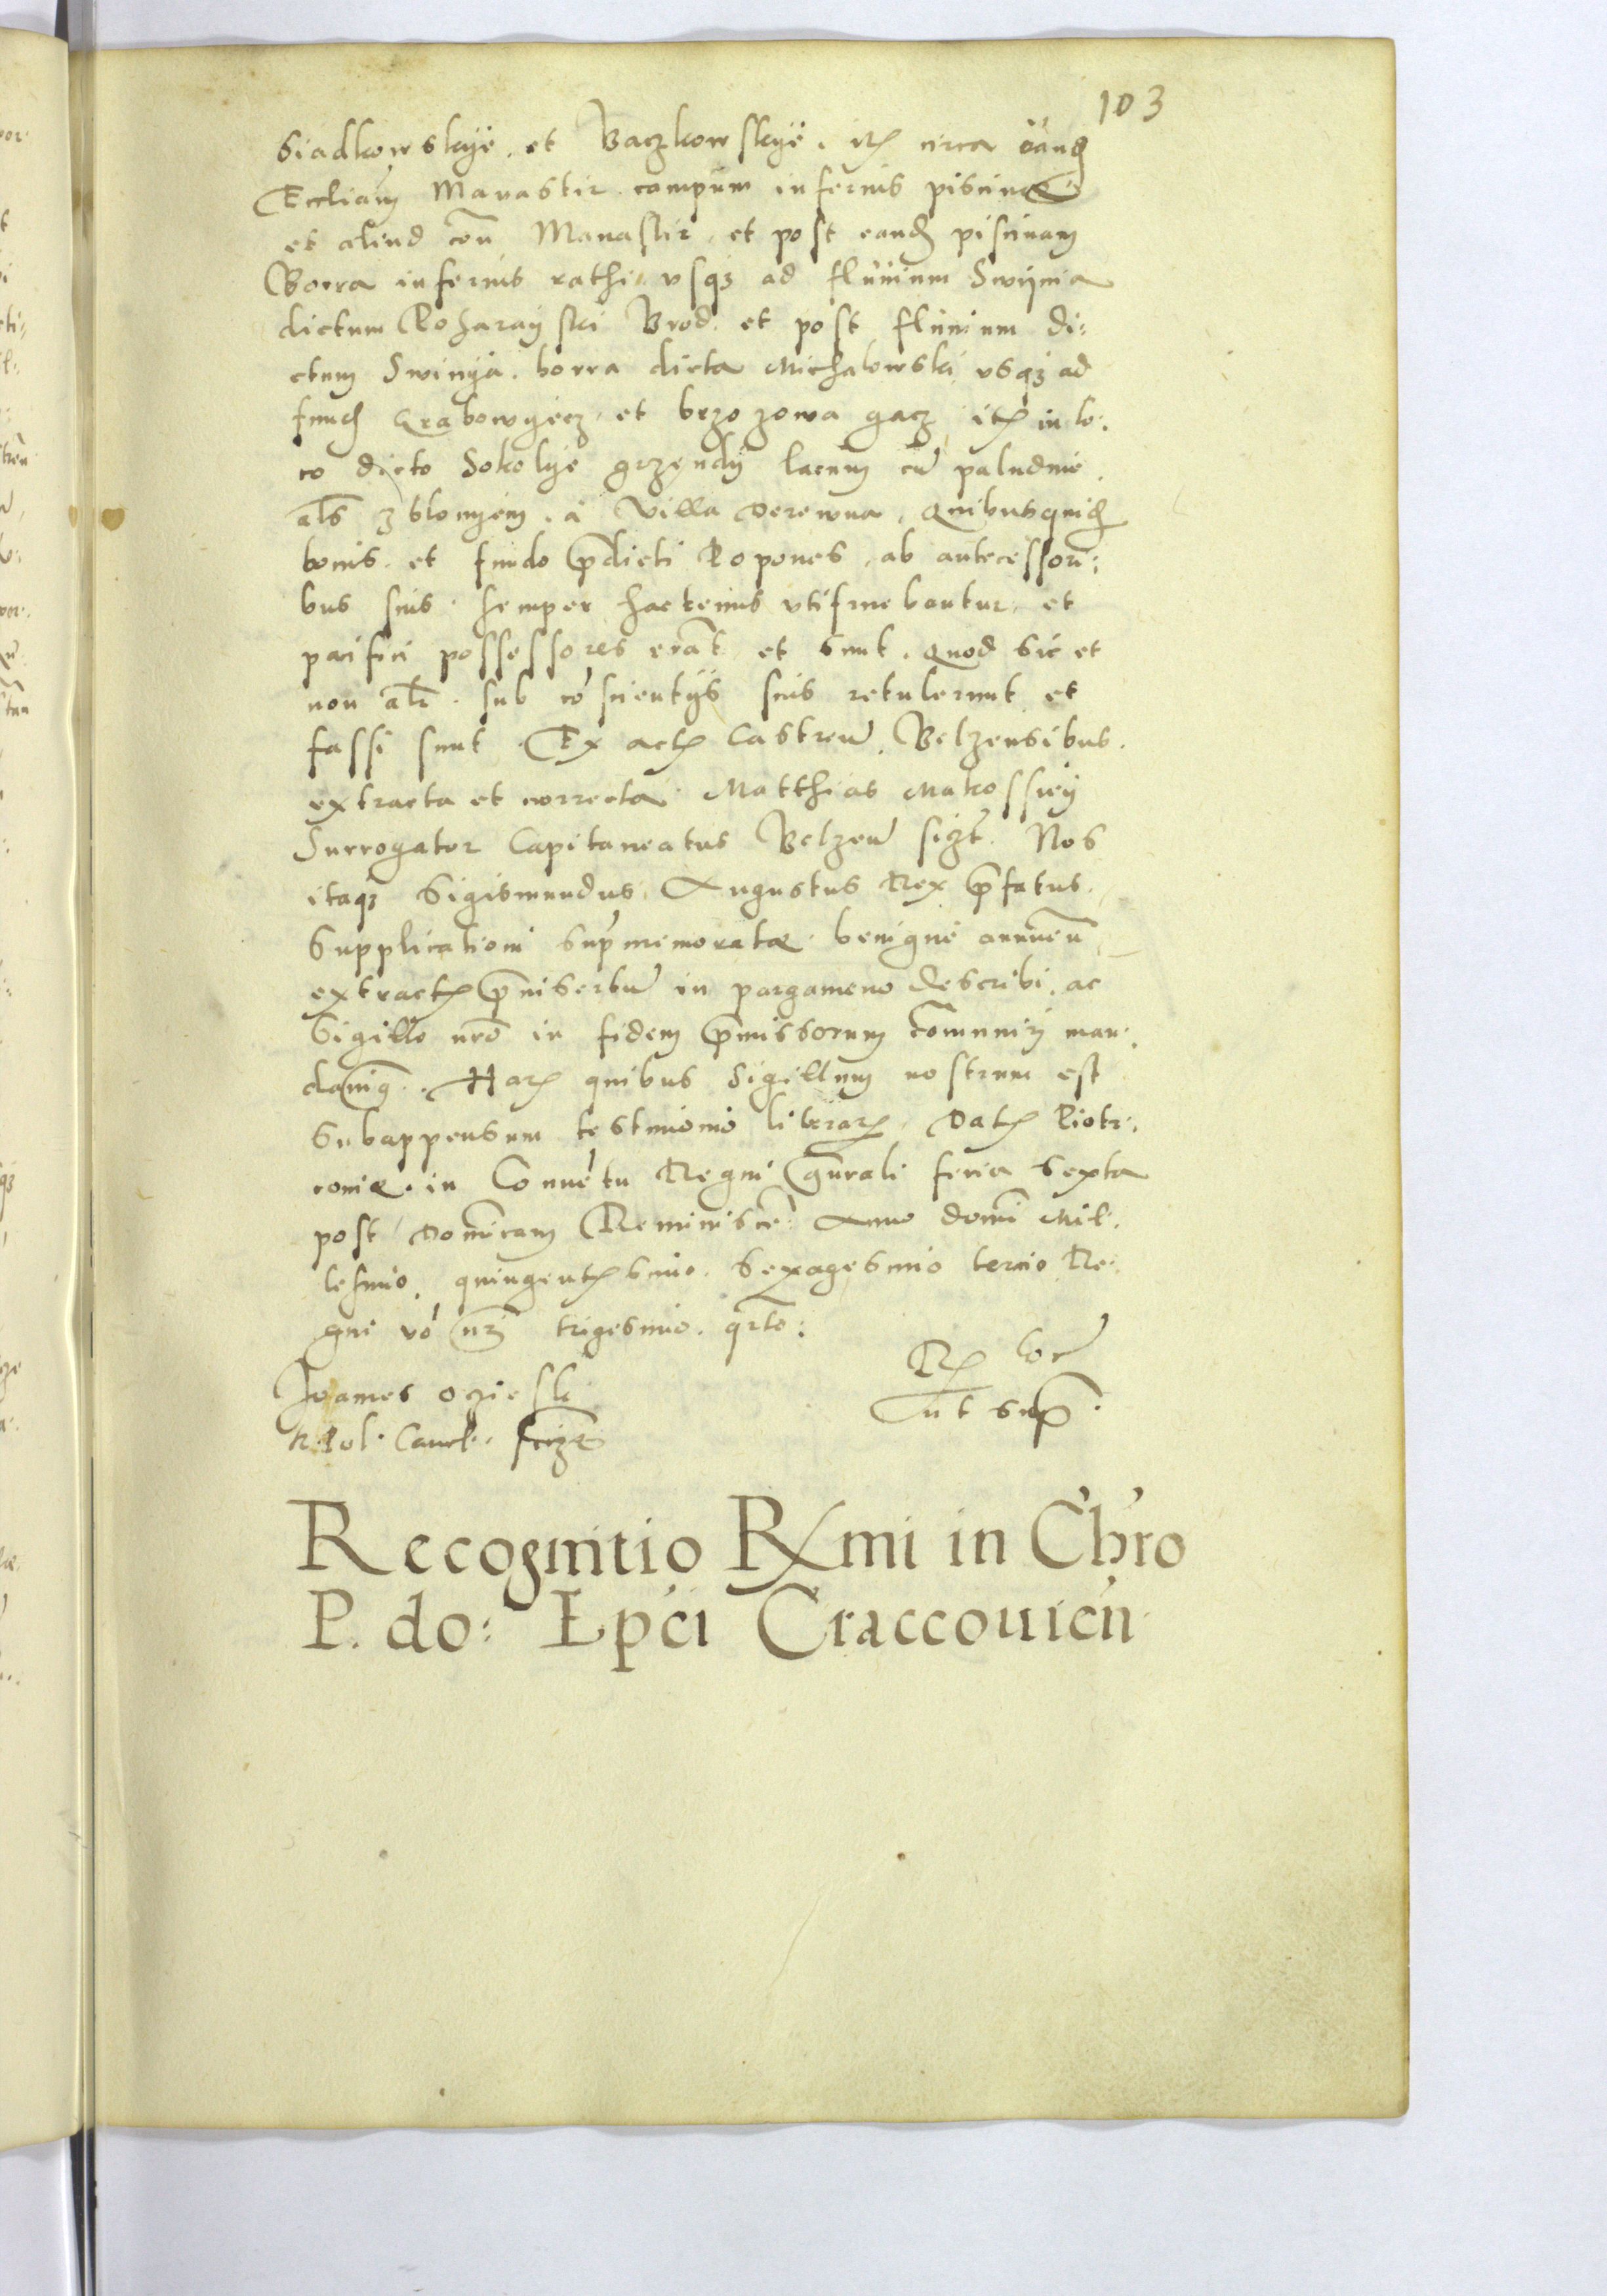 103
Siadkowskye. et Baczkowskye. itē circa eandē
Eccliam Manastir. campum inferius piscinæ
et aliud coñ Manastir. et post eandē piscinam
Borra inferius rathi. vsqз ad fluuium Swijnia
dictum Poharayski Brod. et post fluuium di:
ctum Swinya. borra dicta Michalowski vsqз ad
fundū Grabowyecz. et brzozowa gacz itē in lo:
co dicto Sokolye grzendy lacum cū paludine.
als з blonyem. à villa Derewna. Quibusquidē
bonis. et fundo p̄dicti Popones. ab antecessori:
bus suis. semper hactenus vtifruebantur. et
pacifici possessores erāt et sunt. Quod sic et
non alr̄. sub cōscientijs suis retulerunt et
fassi sunt. Ex actis Castreñ. Belzensibus.
extracta et correcta. Matthias Makossiey
Surrogator Capitaneatus Belzeñ sszt. Nos
itaqз Sigismundus Augustus Rex p̄fatus.
Supplicationi sup̄memoratæ. benigne annueñ
extractū p̄insertū in pargameno describi. ac
Sigillo nr̄o in fidem p̄missorum com̄uniri man:
dauimg. Harū quibus Sigillum nostrum est
subappensum testimonio literarū. Datū Piotr:
coniæ. in Conuētu Regni gn̄rali feria sexta
post Domīcam Reminiscē: Anno domī Mil:
lesimo. quingentēsimo. Sexagesimo tercio Re:
gni vō nr̄i trigesimo. qrto:
Joannes Oczieski
R. Pol. Canc.
ut sup̄.
Recognitio Rx̄mi in Chr̄o
P. do: Ep̄ci Craccouicñ